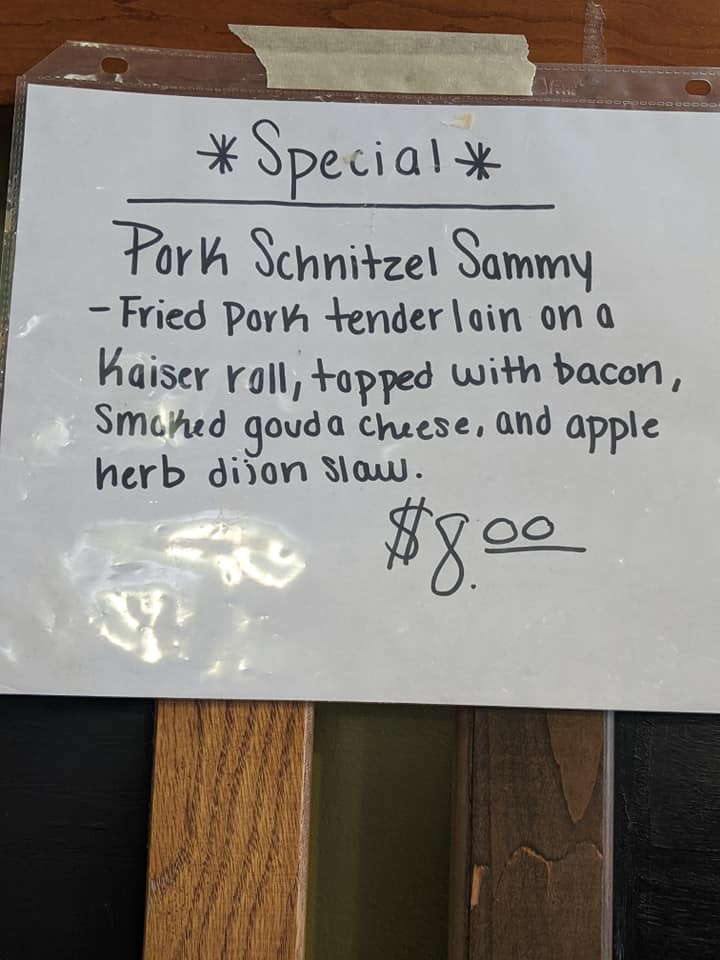 *Special*
Pork Schnitzel Sammy
- Fried Pork tenderloin on a
Kaiser roll, topped with bacon,
Smoked gouda cheese, and apple
herb dijon slaw.
$8.00